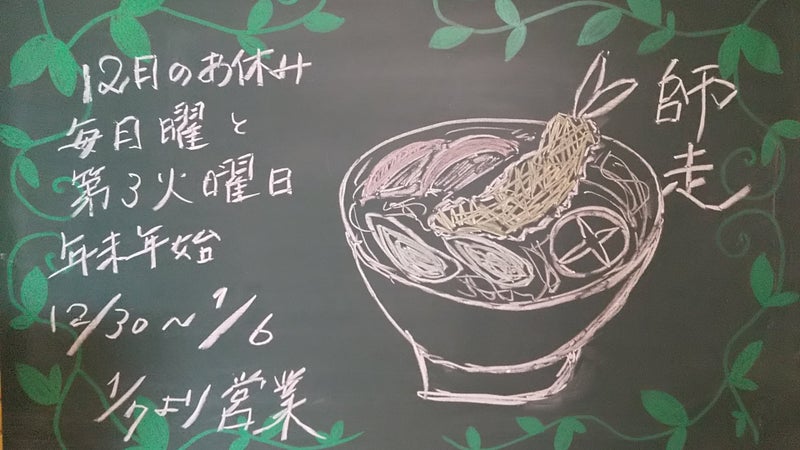 12月のお休み
毎日曜と
第3火曜日
年末年始
12/30~1/6
1/7より営業
師走